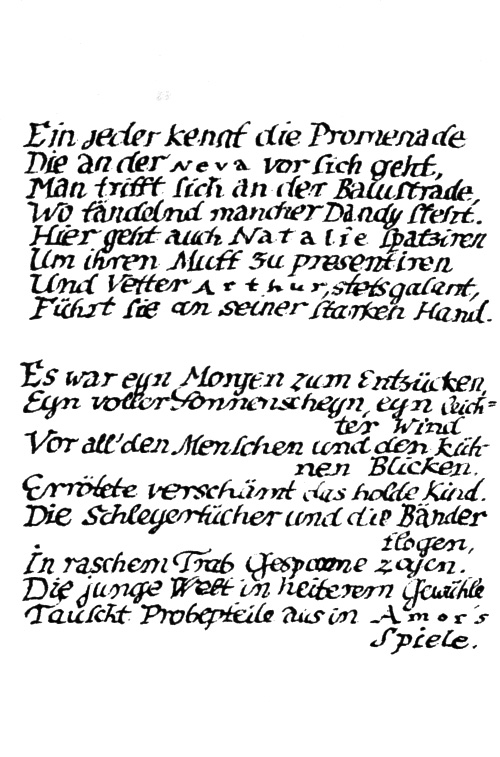 Ein jeder kennt die Promenade
Die an der Neva vor sich geht,
Man trifft sich an der Balustrade,
Wo tändelnd mancher Dandy steht.
Hier geht auch Natalie spatziren
Um ihren Muff zu præsentiren
Und Vetter Arthur, stets galant,
Führt sie an seiner starken Hand.
Es war eyn Morgen zum Entzücken,
Eyn voller Sonnenscheyn, eyn leich=
ter Wind
Vor all' den Menschen und den küh-
nen Blicken.
Errötete verschämt das holde Kind.
Die Schleyertücher und die Bänder
flogen,
In raschem Trab Gespanne zogen.
Die junge Welt in heiterem Gewühle
Tauscht Probepfeile aus in Amor's
Spiele.